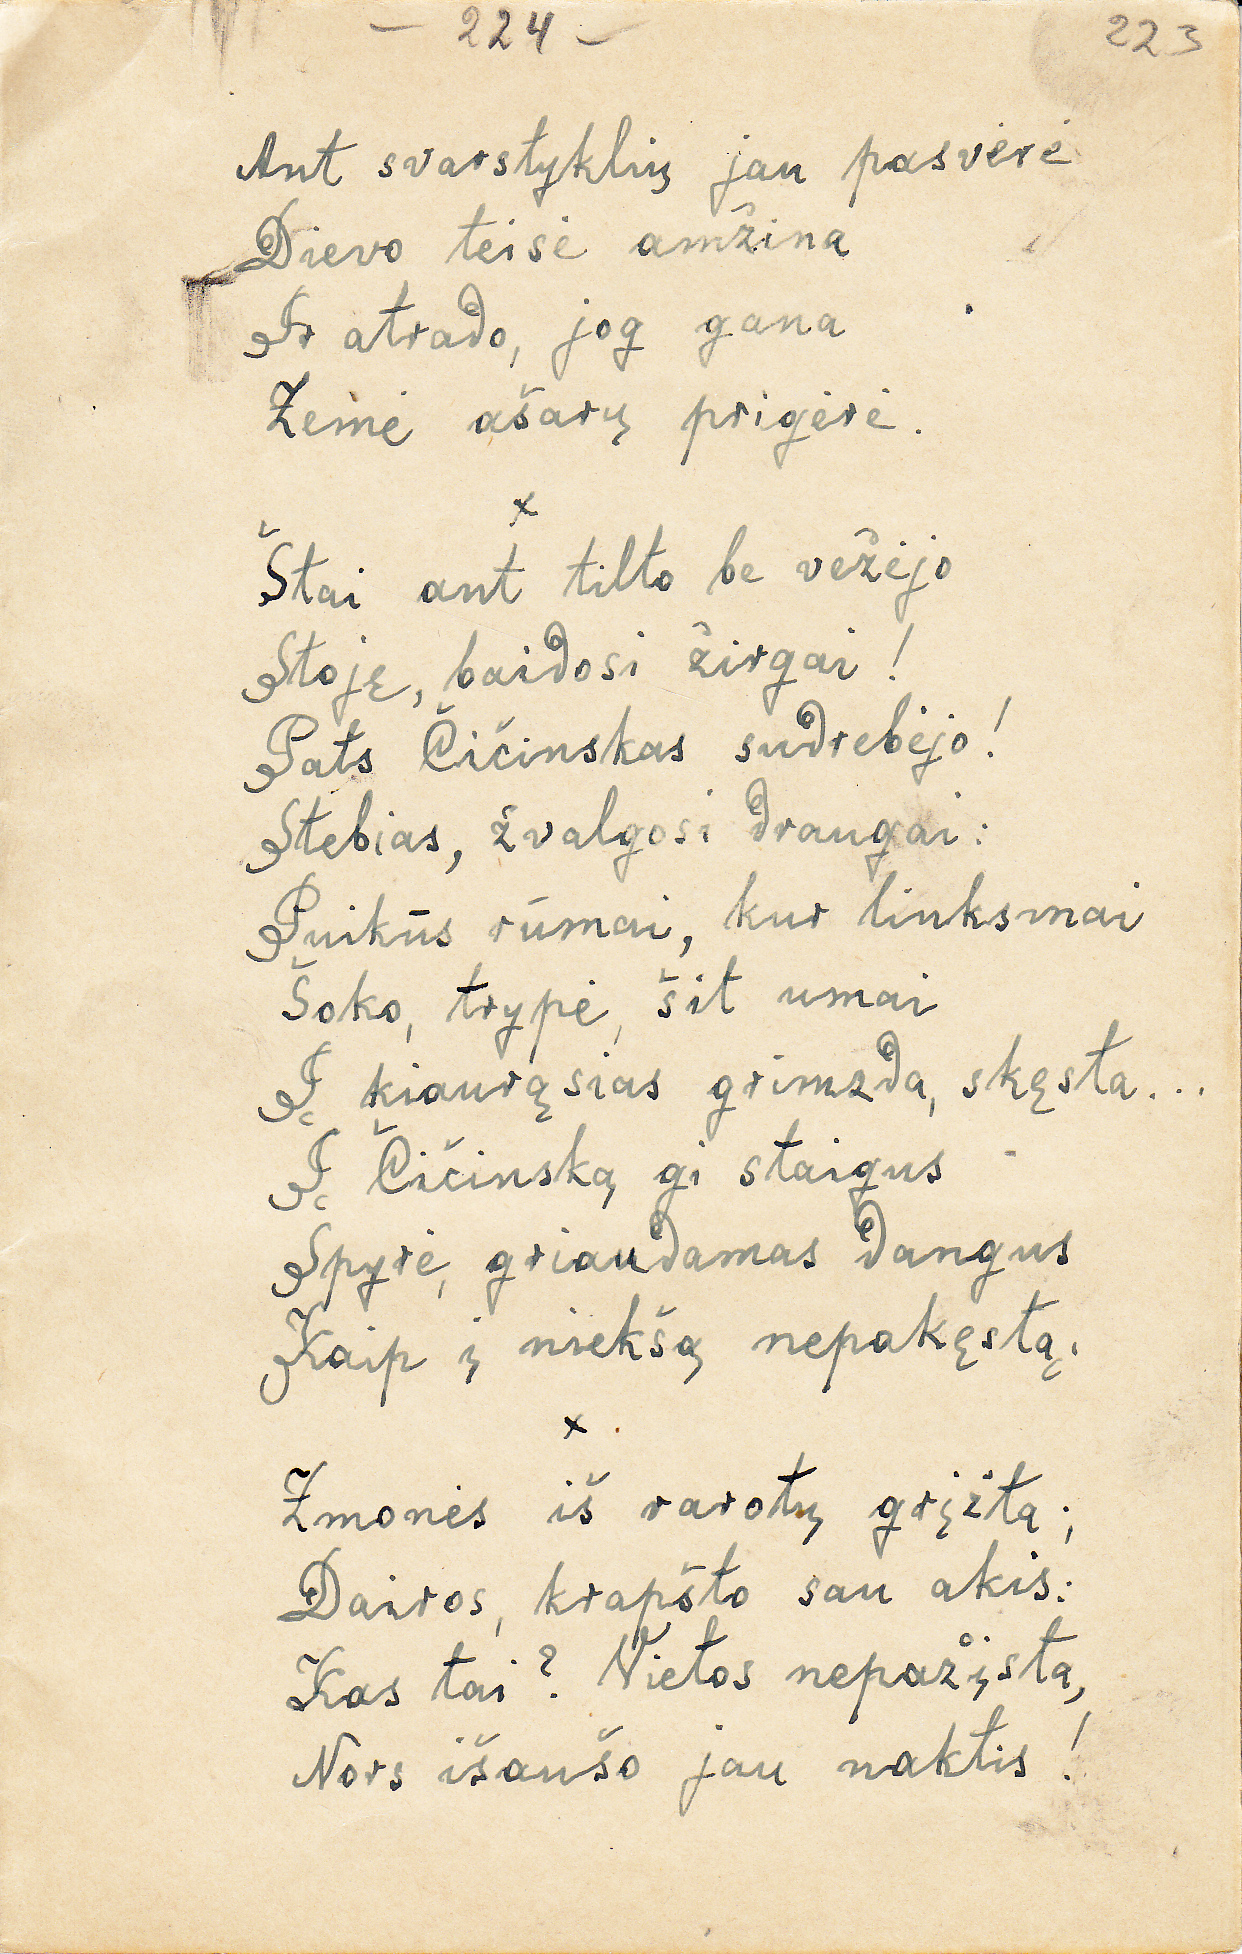 - 224 -
223
Ant svarstyklių jau pasvėrė
Dievo teisė amžina
Ir atrado, jog gana
Žemė ašarų prigėrė.
x
Štai ant tilto be vežėjo
Stoję, baidosi žirgai!
Pats Čičinskas sudrebėjo!
Stebias, žvalgosi draugai:
Puikūs rūmai, kur linksmai
Šoko, trypė, šit umai
Į kiaurąsias grimzda, skęsta...
Į Čičinską gi staigus
Spyrė, griaudamas dangus
Kaip į niekšą nepakęstą.
x
Žmonės iš rarotų grįžta;
Dairos, krapšto sau akis:
Kas tai? Vietos nepažįsta,
Nors išaušo jau naktis!